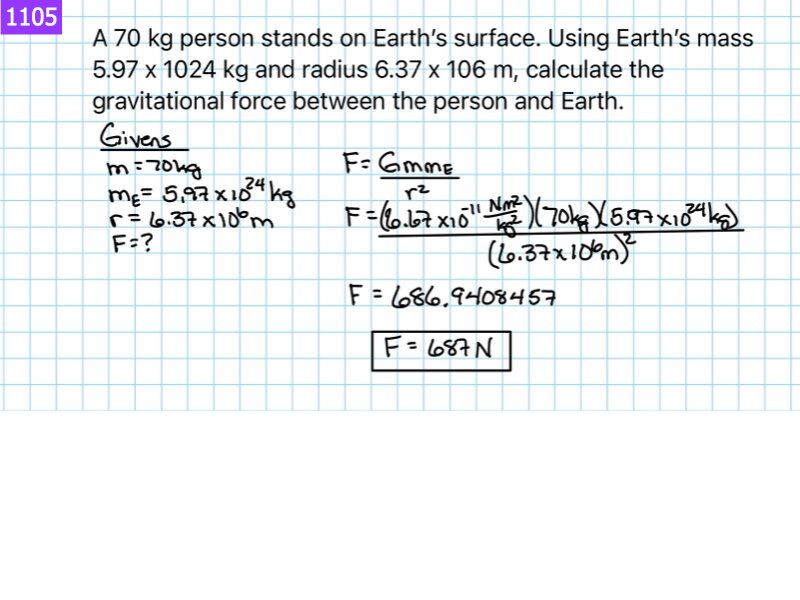 1105
A 70 kg person stands on Earth's surface. Using Earth's mass
5.97 x 1024 kg and radius 6.37 x 106 m, calculate the
gravitational force between the person and Earth.
Givens
m = 70kg
mE = 5.97 x 10^24 kg
r = 6.37 x 10^6 m
F = ?
F = GmmE
r²
F = (6.67 x 10^-11 Nm²/kg²)(70kg)(5.97 x 10^24 kg)
(6.37 x 10^6 m)²
F = 686.9408457
F = 687 N